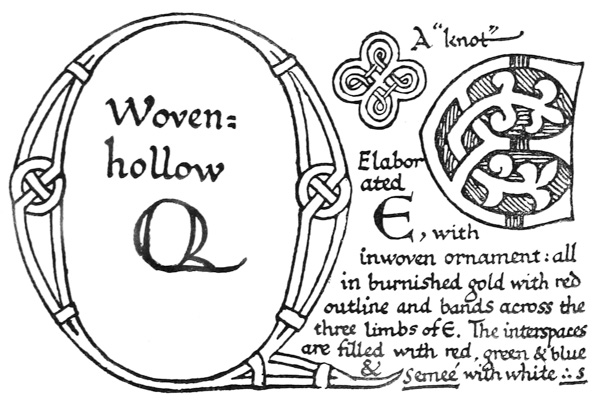 Woven=
hollow
Q
A "knot"
Elabor
ated
E, with
inwoven ornament: all
in burnished gold with red
outline and bands across the
three limbs of E. The interspaces
are filled with red, green & blue
& Semeé with white ∴ s